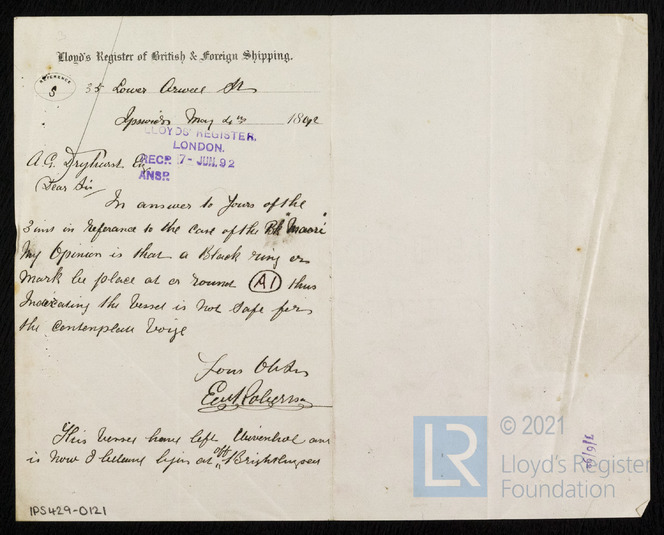 Lloyd's Register of British & Foreign Shipping.
REFERENCE
S
35 Lower Orwell St
Ipswich May 4th 1892
LLOYDS' REGISTER.
LONDON.
RECD. 7- JUN. 92
ANSD.
A. G. Dryhurst Esq
Dear Sir
In answer to Yours of the
3 ins in Reference to the case of the Bk "Maori"
My Opinion is that a Black ring or
mark be place at or round (A1) thus
Indicating the Vessel is not safe for
the contemplate Voige
Yours Obtly
Edw Roberson
This Vessel have left Wivenhoe and
is now I beleave lying at off Brightlingsea
IPS429-0121
3/6/92
LR
© 2021
Lloyd's Register
Foundation